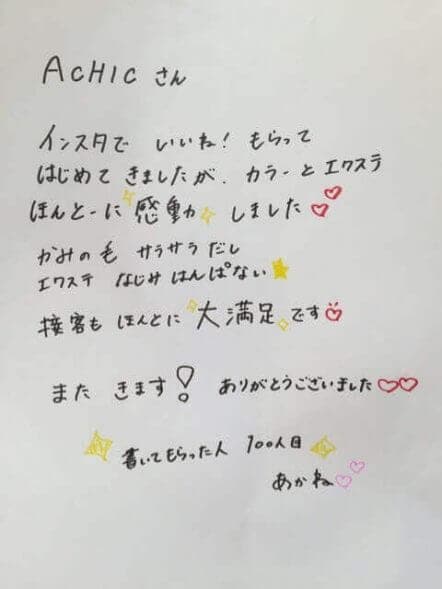 ACHIC さん
インスタで いいね! もらって
はじめて きましたが、カラーと エクステ
ほんとーに 感動 しました
かみの毛 サラサラ だし
エクステ なじみ はんぱない
接客も ほんとに 大満足 です
また きます! ありがとうございました
書いてもらった人 100人目
あかね